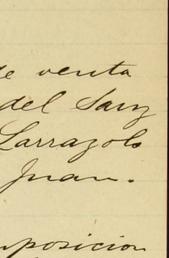 de venta
del Sanz
Larrazolo
Juan.
mposicion